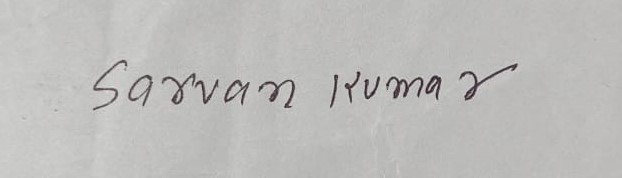 Sarvan Kumar